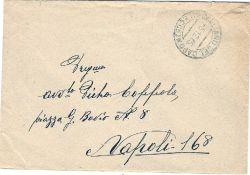 Egregio
avv.to Pietro Coppola
piazza G. Bovio N. 8
Napoli-168